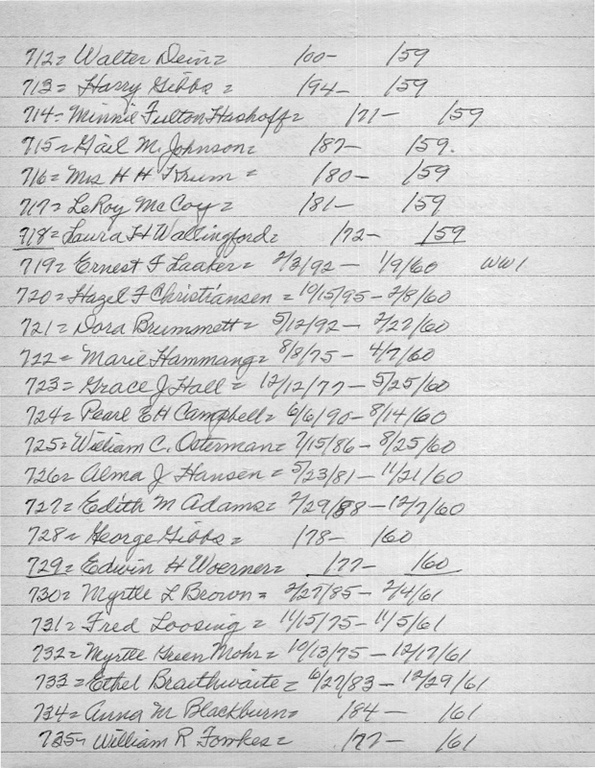 712= Walter Dein= /00- /59
713= Harry Gibbs = /94- /59
714= Minnie Fulton Hashoff= /71- /59
715= Gail M. Johnson= /87- /59.
716= Mrs H H Krum = /80- /59
717= LeRoy McCoy= /81- /59
718= Laura H Wallingford= /72- /59
719= Ernest F Laaker= 2/3/92- 1/9/60 WW1
720= Hazel F Christiansen = 10/15/95- 2/8/60
721= Dora Brummett= 5/12/92- 2/22/60
722= Marie Hammang= 8/8/75- 4/7/60
723= Grace J Hall = 12/12/77- 5/25/60
724= Pearl E H Campbell= 6/6/90- 8/14/60
725= William C. Osterman= 7/15/86- 8/25/60
726= Alma J Hansen = 5/23/81- 11/21/60
727= Edith M Adams= 2/29/88- 12/7/60
728= George Gibbs = /78- /60
729= Edwin H Woerner= /77- /60
730= Myrtle L Brown = 2/27/85- 2/4/61
731= Fred Loosing = 11/15/75- 11/5/61
732= Myrtle Green Mohr= 10/13/75- 12/17/61
733= Ethel Braithwaite = 6/27/83- 12/29/61
734= Anna M Blackburn= /84- /61
735= William R Fowkes= /77- /61